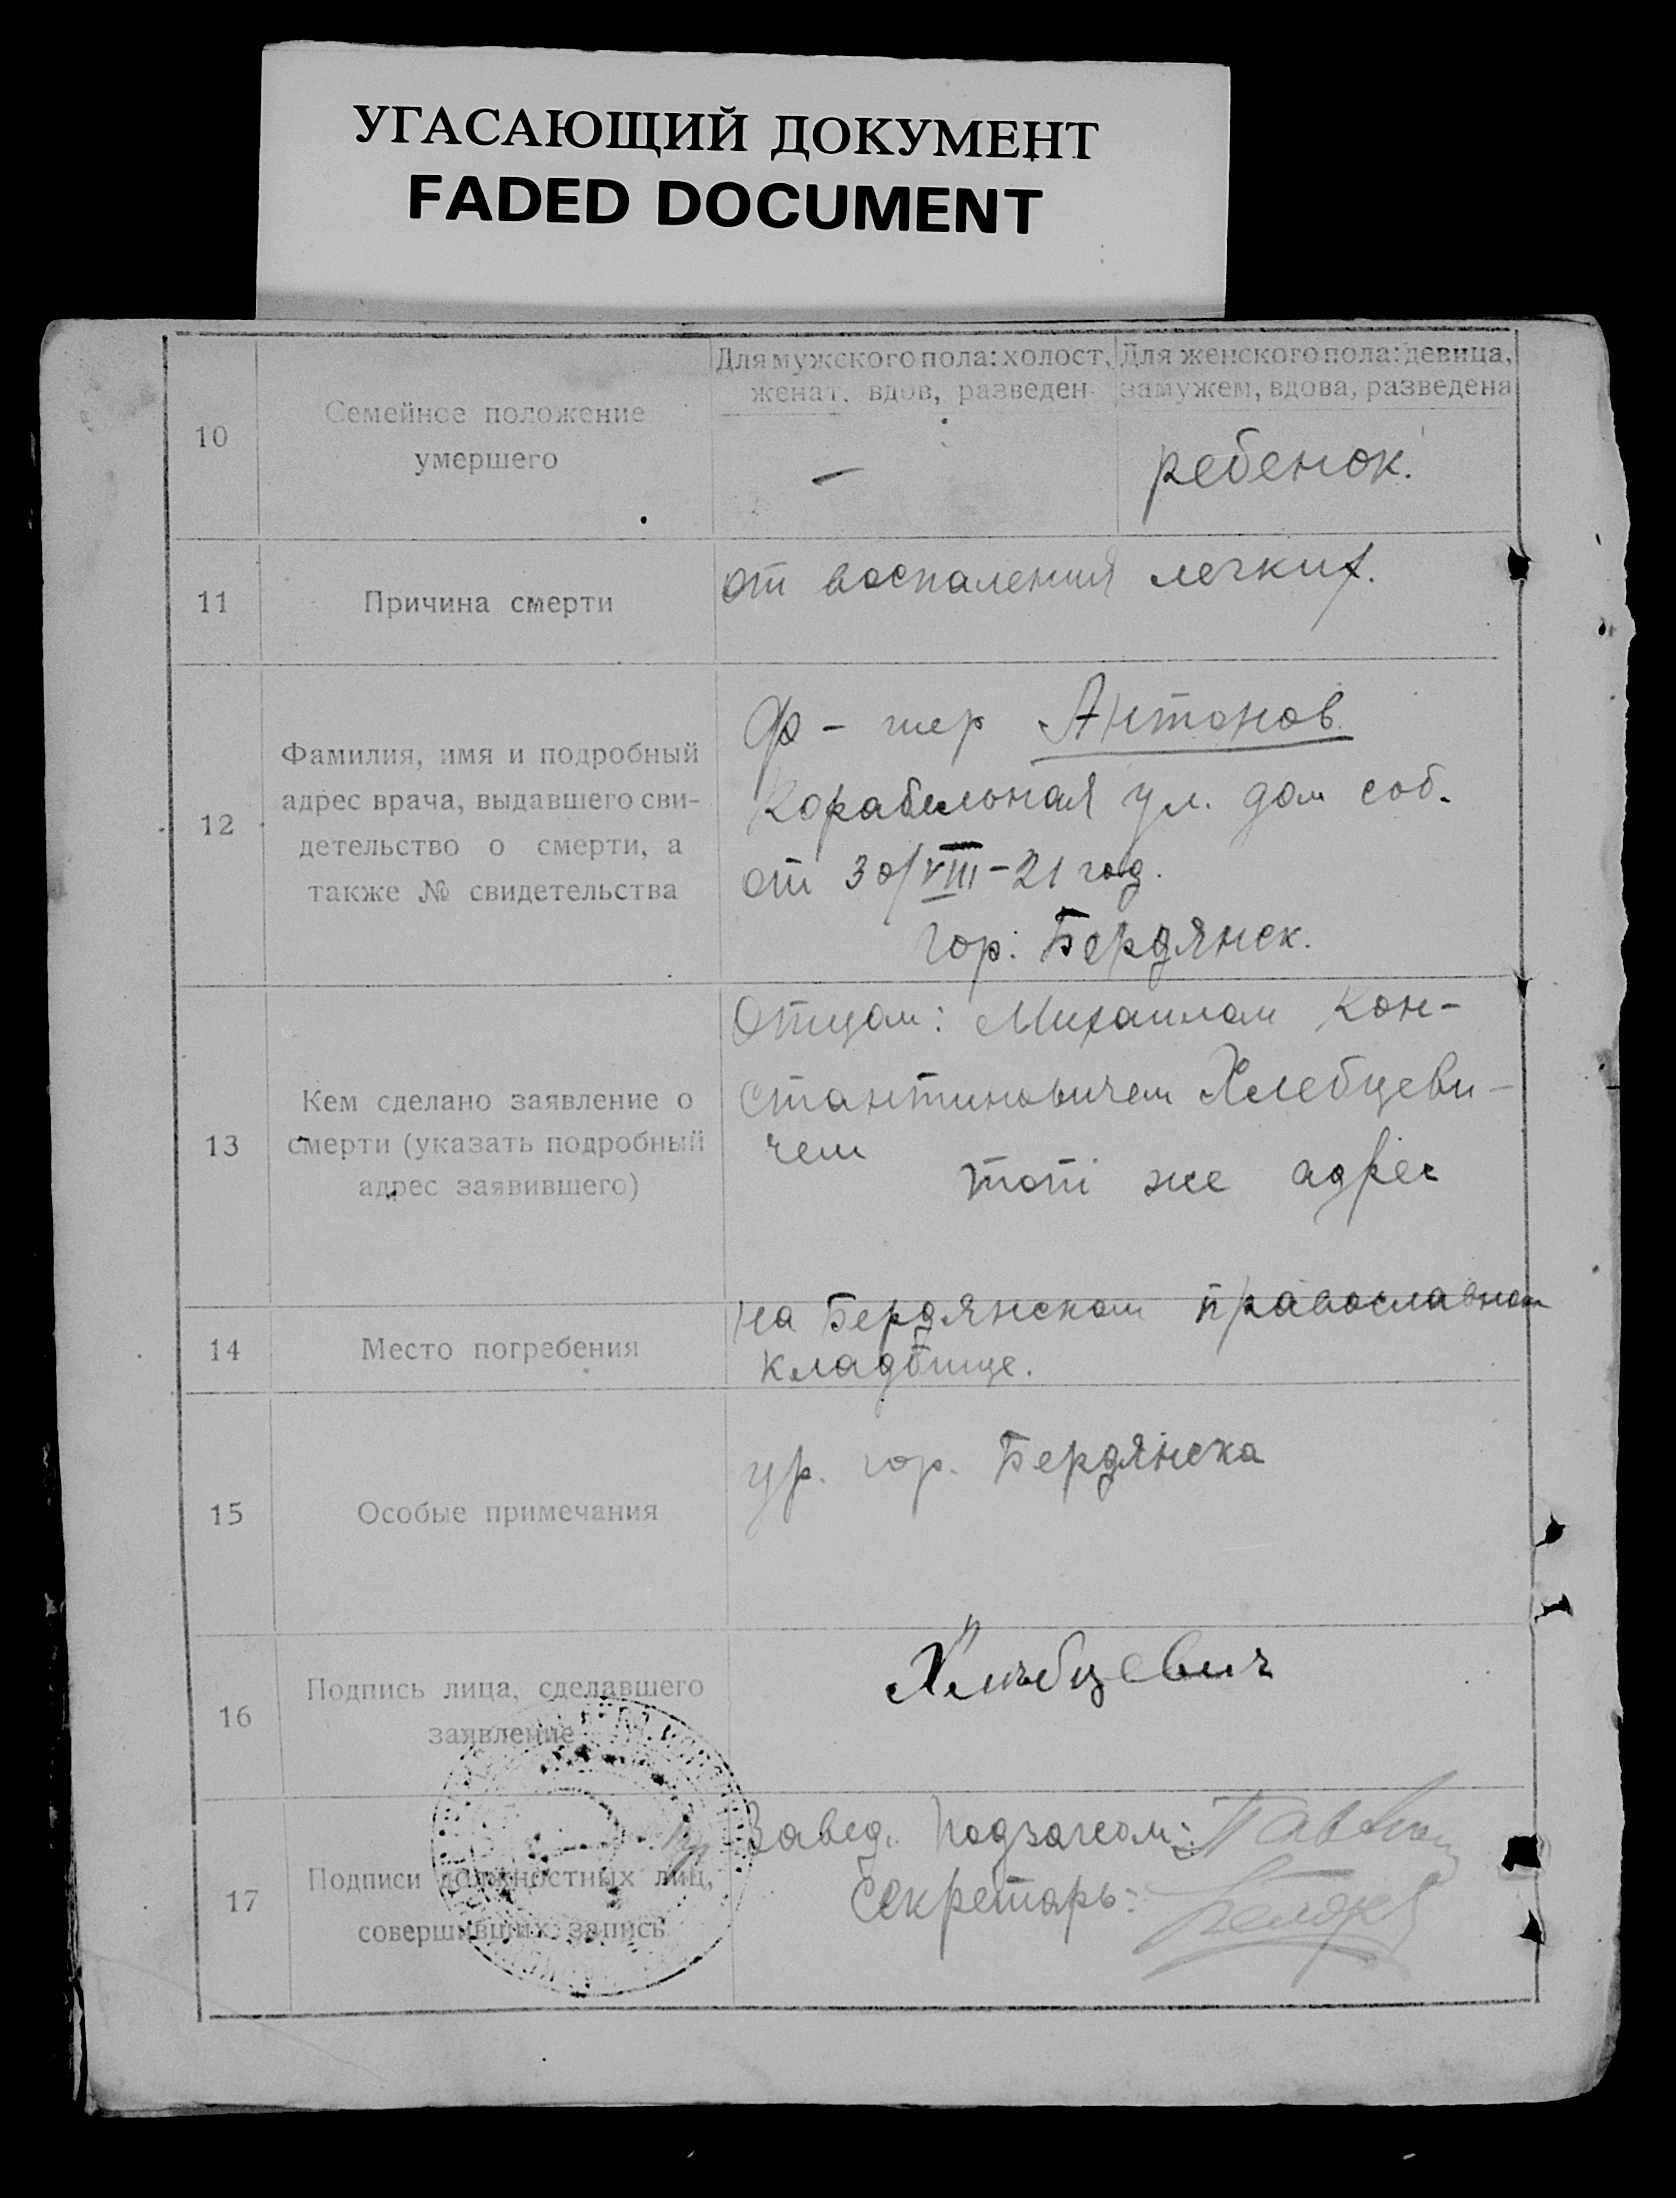 УГАСАЮЩИЙ ДОКУМЕНТ
FADED DOCUMENT
10
Семейное положение
умершего
Для мужского пола: холост,
женат, вдов, разведен
—
Для женского пола: девица,
замужем, вдова, разведена
ребенок.
11
Причина смерти
от воспаления легких.
12
Фамилия, имя и подробный
адрес врача, выдавшего сви-
детельство о смерти, а
также № свидетельства
Ф-шер Антонов
Корабельная ул. дом соб.
от 30/VIII-21 год.
гор. Бердянск.
13
Кем сделано заявление о
смерти (указать подробный
адрес заявившего)
Отцом: Михаилом Кон-
стантиновичем Хлебцеви-
чем
тот же адрес
14
Место погребения
на Бердянском православном
кладбище.
15
Особые примечания
ур. гор. Бердянска
16
Подпись лица, сделавшего
заявление
Хлѣбцевич
17
Подписи должностных лиц,
совершивших запись
Завед. Подзагсом:
Секретарь: